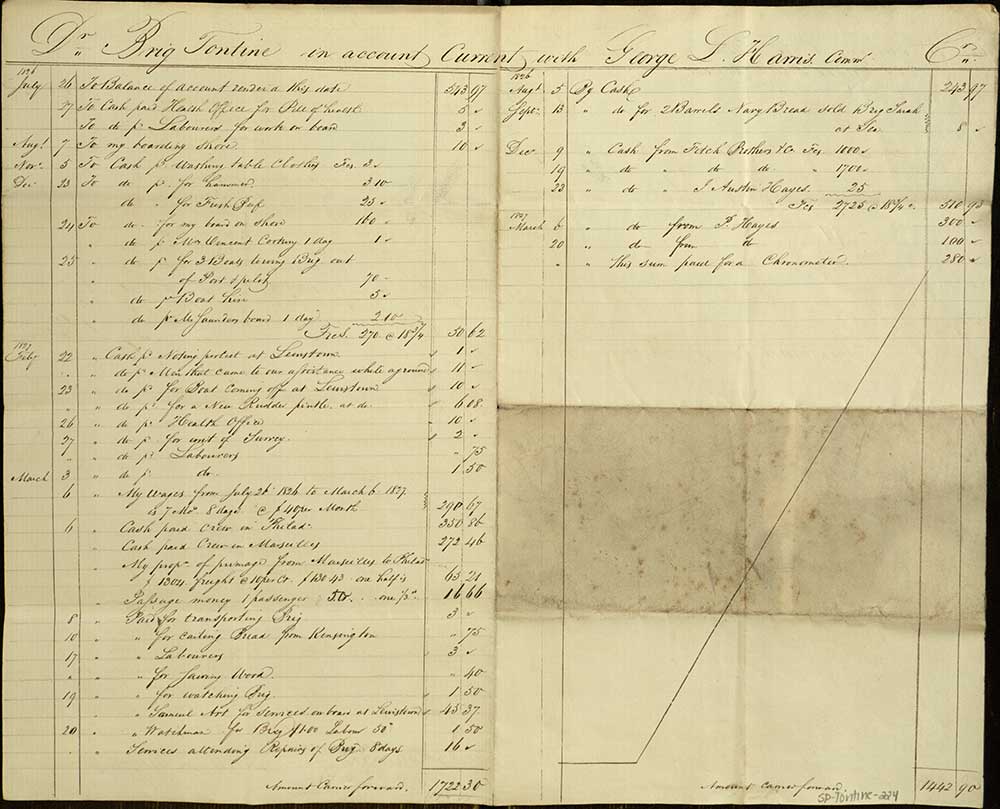 Dr Brig Tontine in account Current with George L. Harris Comr Cr
1826
July 26 To Balance of account renderd this date 243 97
27 To Cash paid Health Office for Bill of health 5 "
To do pd Labourers for work on board 3 "
Augt 7 To my boarding Shore 10 "
Novr 5 To Cash pd Washing table Clothes Fcs 2 "
Dec 23 To do pd for hammer 3 10
" do " for Fresh Beef 25 "
24 To do for my board on Shore 160 "
" do pd Mr Vincent Cooking 1 day 1 "
25 " do pd for 3 Boats towing Brig out
" of Port
" do pd Boat hire 5 "
" do pd Mr Saunders board 1 day 2 10
Frcs. 270 @ 18 3/4 50 62
1827
Feby 22 " Cash pd Noting protest at Lewistown 1 "
" do pd Men that came to our assistance while aground 11 "
23 " do pd for Boat Coming off at Lewistown 10 "
" " do pd for a New Rudder pintle at do 6 08
26 " do pd Health Office 10 "
27 " do pd for writ of Survey 2 "
" " do pd Labourers " 75
March 3 " do pd do 1 50
6 " My wages from July 26 1826 to March 6 1827
is 7 Mos 8 days @ $40 per Month 290 67
6 " Cash paid Crew in Philada 350 86
" Cash paid Crew in Marseilles 272 46
" My propn of primage from Marseilles to Philada
$ 1304 freight @ 10 per Ct $130 43 one half is 65 21
" Passage money 1 passenger one 1/2 16 66
8 " Paid for transporting Brig 3 "
10 " " for carting Bread from Kensington " 75
17 " " Labourers 3 "
" " for Sawing Wood " 40
19 " " for watching Brig 1 50
" " Samuel Art for Services on board at Lewistown 45 37
20 " " Watchman for Brig $1.00 Labour 50 1 50
" " Services attending Repairs of Brig 8 days 16 "
Amount Carried forward 1722 30
1826
Augt 5 By Cash 243 97
Septr 13 " do for 2 Barrels Navy Bread sold Brig Sarah
at Sea 8 "
Dec 9 " Cash from Fitch Brothers & Co Fcs 1000 "
19 " do " do do " 1700 "
23 " do " J Austin Hayes 25
Fcs 2725 @ 18 3/4 510 93
1827
March 6 " do from P. Hayes 300 "
20 " do from do 100 "
" " this sum paid for a Chronometer 280 "
Amount carried forward 1442 90
SD-Tontine-224